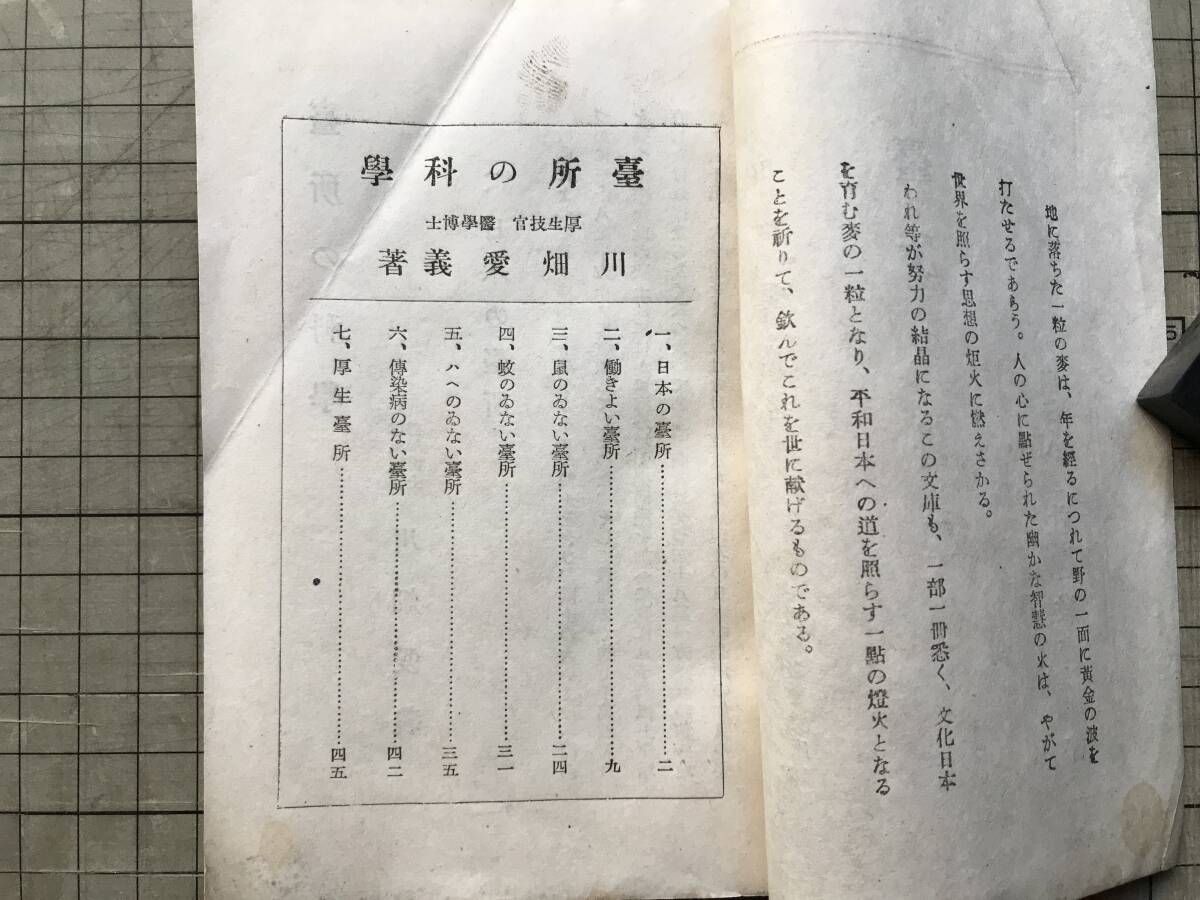 地に落ちた一粒の麥は、年を經るにつれて野の一面に黃金の波を
打たせるであらう。人の心に點ぜられた幽かな智慧の火は、やがて
世界を照らす思想の炬火に燃えさかる。
われ等が努力の結晶になるこの文庫も、一部一冊悉く、文化日本
を育む麥の一粒となり、平和日本への道を照らす一點の燈火となる
ことを祈りて、欽んでこれを世に献げるものである。
臺所の科學
厚生技官 醫學博士
川畑愛義著
一、日本の臺所……二
二、働きよい臺所……九
三、鼠のゐない臺所……二四
四、蚊のゐない臺所……三一
五、ハヘのゐない臺所……三五
六、傳染病のない臺所……四二
七、厚生臺所……四五